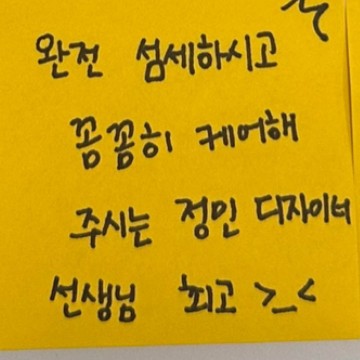 완전 섬세하시고
꼼꼼히 케어해
주시는 정민 디자이너
선생님 최고 >_<